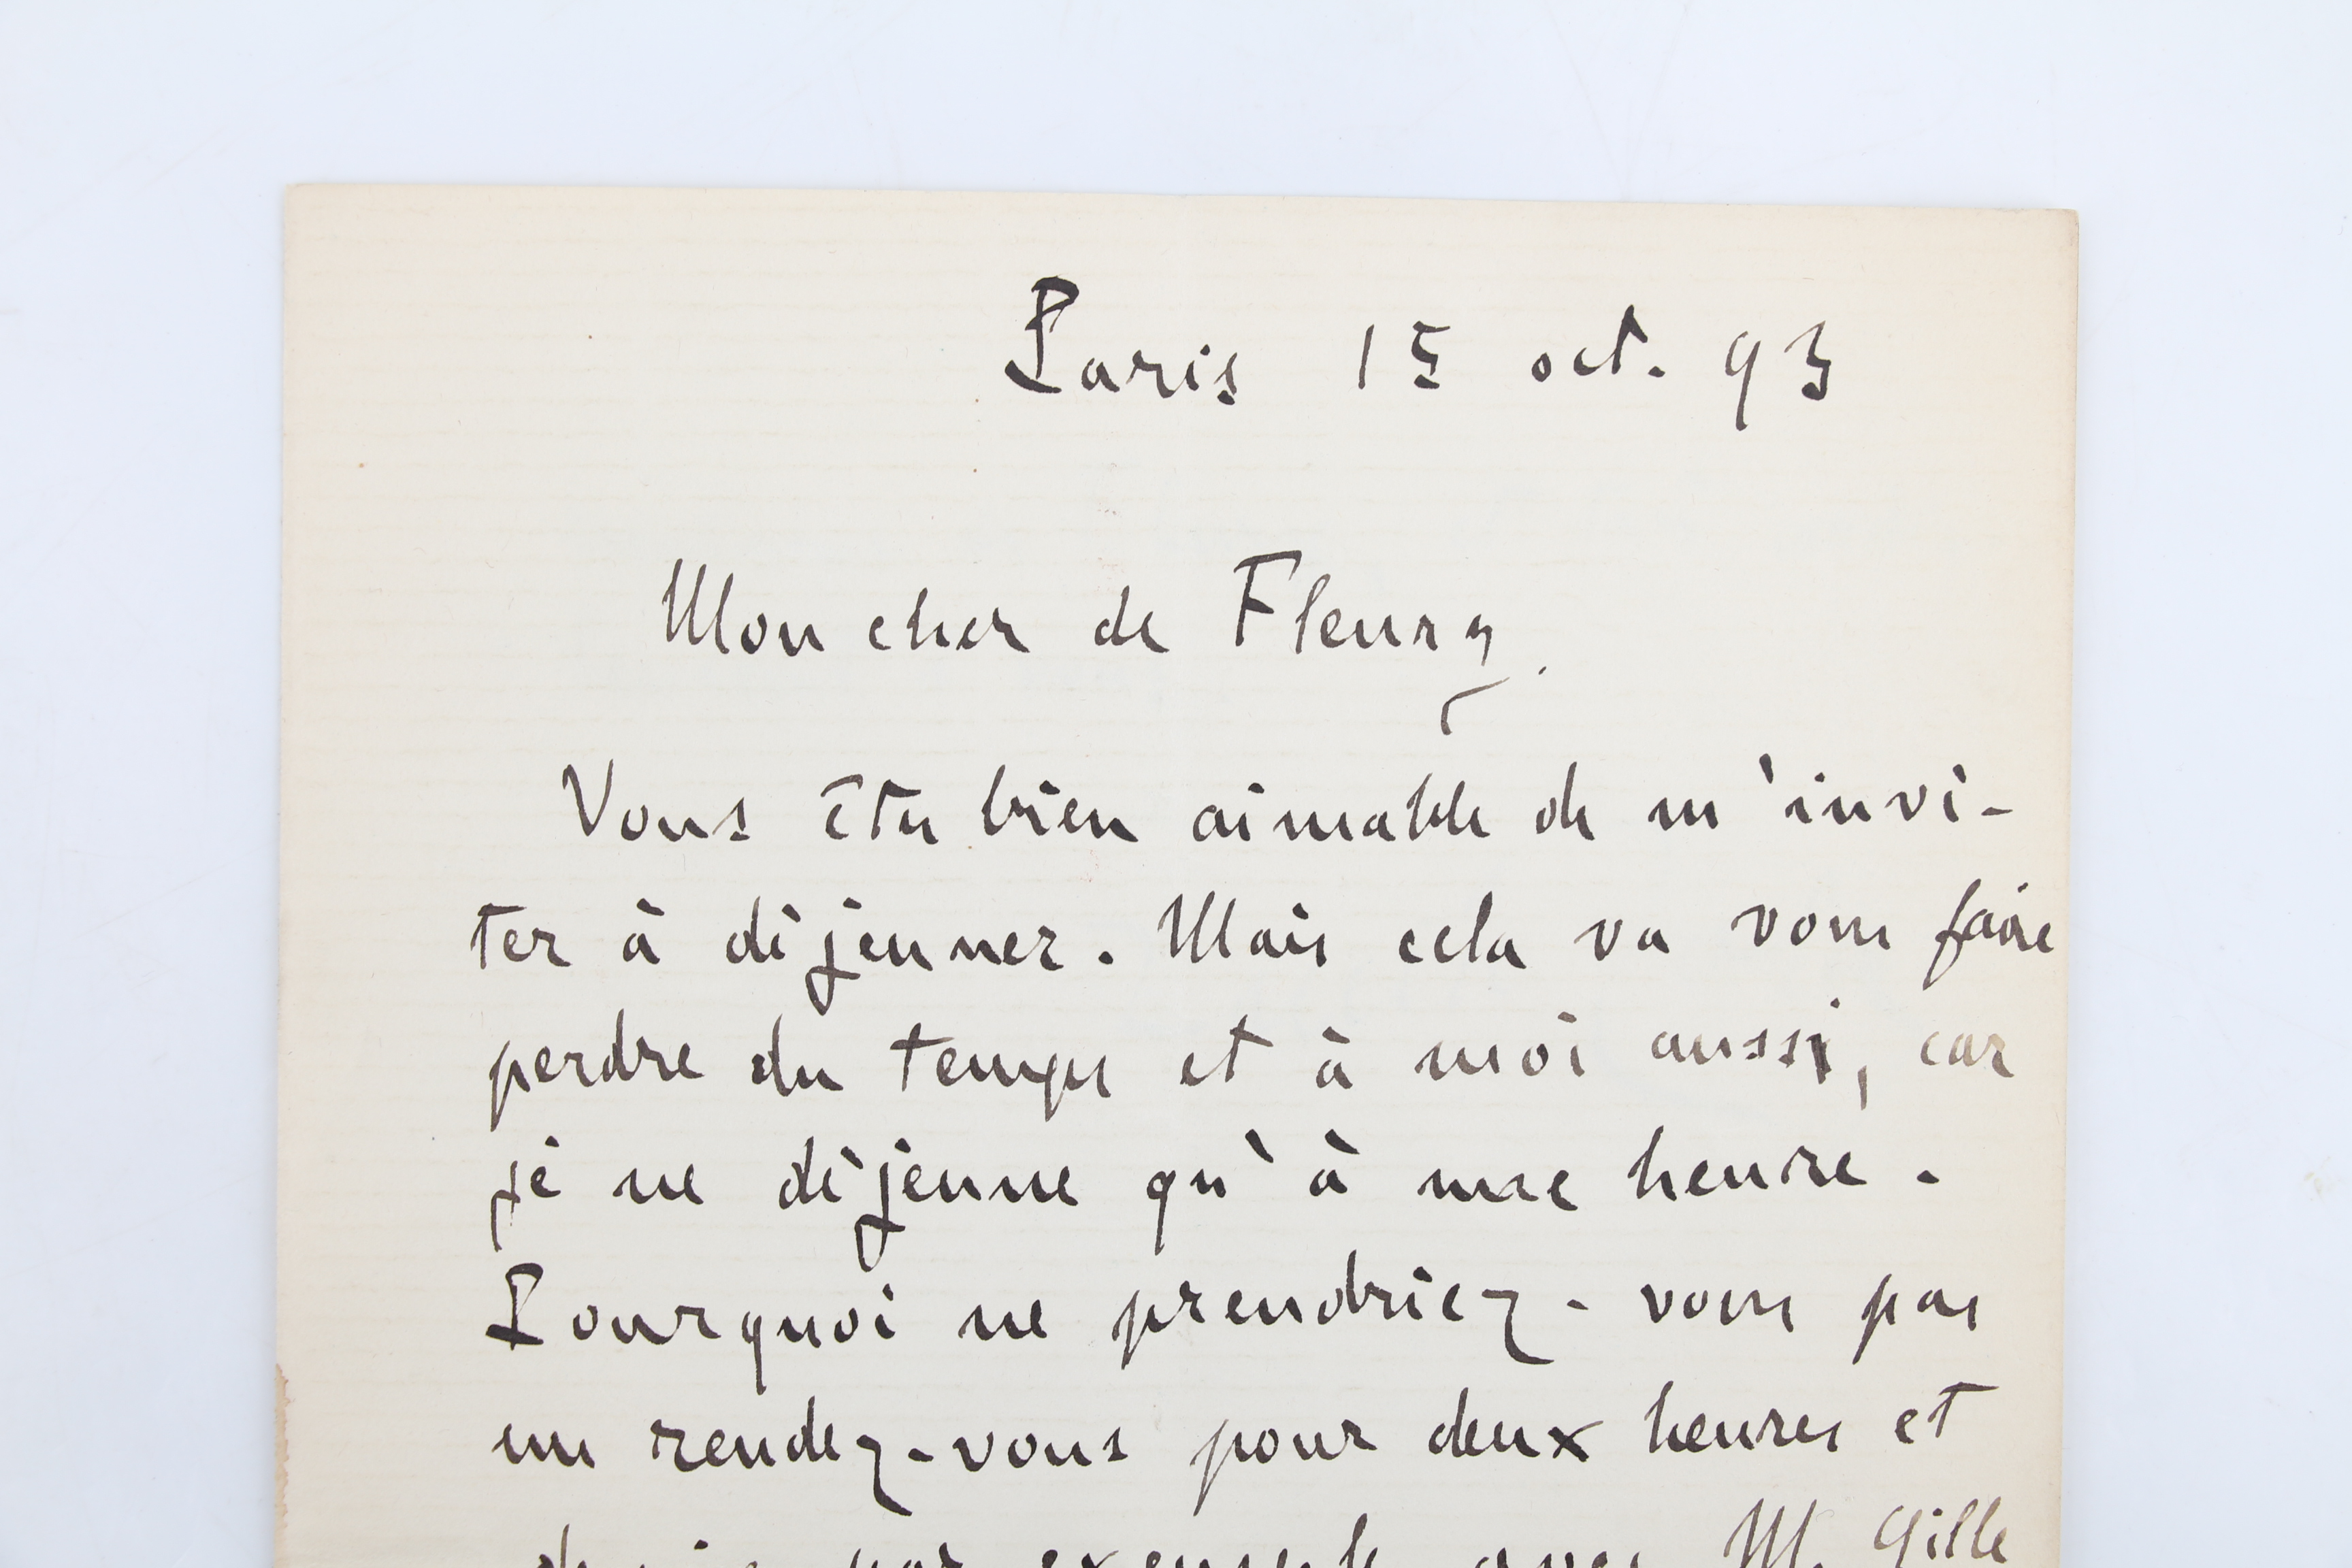 Paris 15 oct. 93
Mon cher de Fleury,
Vous êtes bien aimable de m'invi-
ter à déjeuner. Mais cela va vous faire
perdre du temps et à moi aussi, car
je ne déjeune qu'à une heure.
Pourquoi ne prendriez-vous pas
un rendez-vous pour deux heures et
demie par exemple avec M. Gille